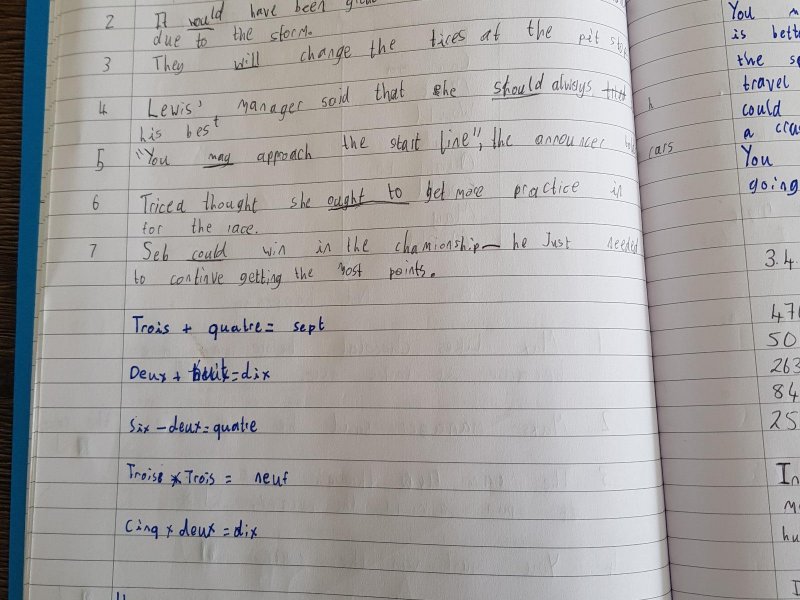 2 It would have been
due to the storm.
3 They will change the tires at the pit
4 Lewis' manager said that she should always
his best
5 "You may approach the start line", the announcer
6 thought she ought to get more practice in
for the race.
7 Seb could win in the chamionship- he Just needed
to continue getting the most points.
Trois + quatre = sept
Deux + huit = dix
Six - deux = quatre
Trois x Trois = neuf
Cinq x deux = dix
cars
You
is
the
travel
could
a
You
going
3.4.
50
263
84
25